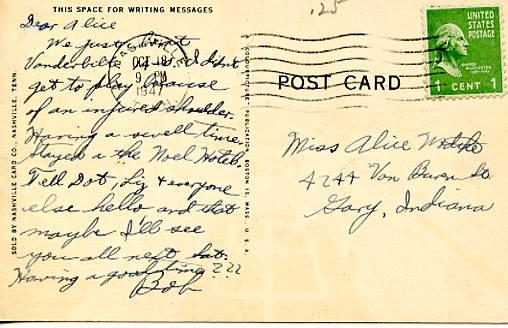 THIS SPACE FOR WRITING MESSAGES
Dear Alice
We just beat
Vanderbilt and I didnt
get to play because
of an injured shoulder.
Having a swell time
Stayed a the Noel Hotel
Tell Dot, Liz + everyone
else hello and that
maybe I'll see
you all next Sat.
Having a good time ???
Bob
SOLD BY NASHVILLE CARD CO. NASHVILLE, TENN.
PUBLICATION, BOSTON 15, MASS., U. S. A.
.25
NASHVILLE
OCT 18
9 PM
1947
POST CARD
UNITED
STATES
POSTAGE
1 CENT 1
Miss Alice
4244 Van Buren St
Gary, Indiana